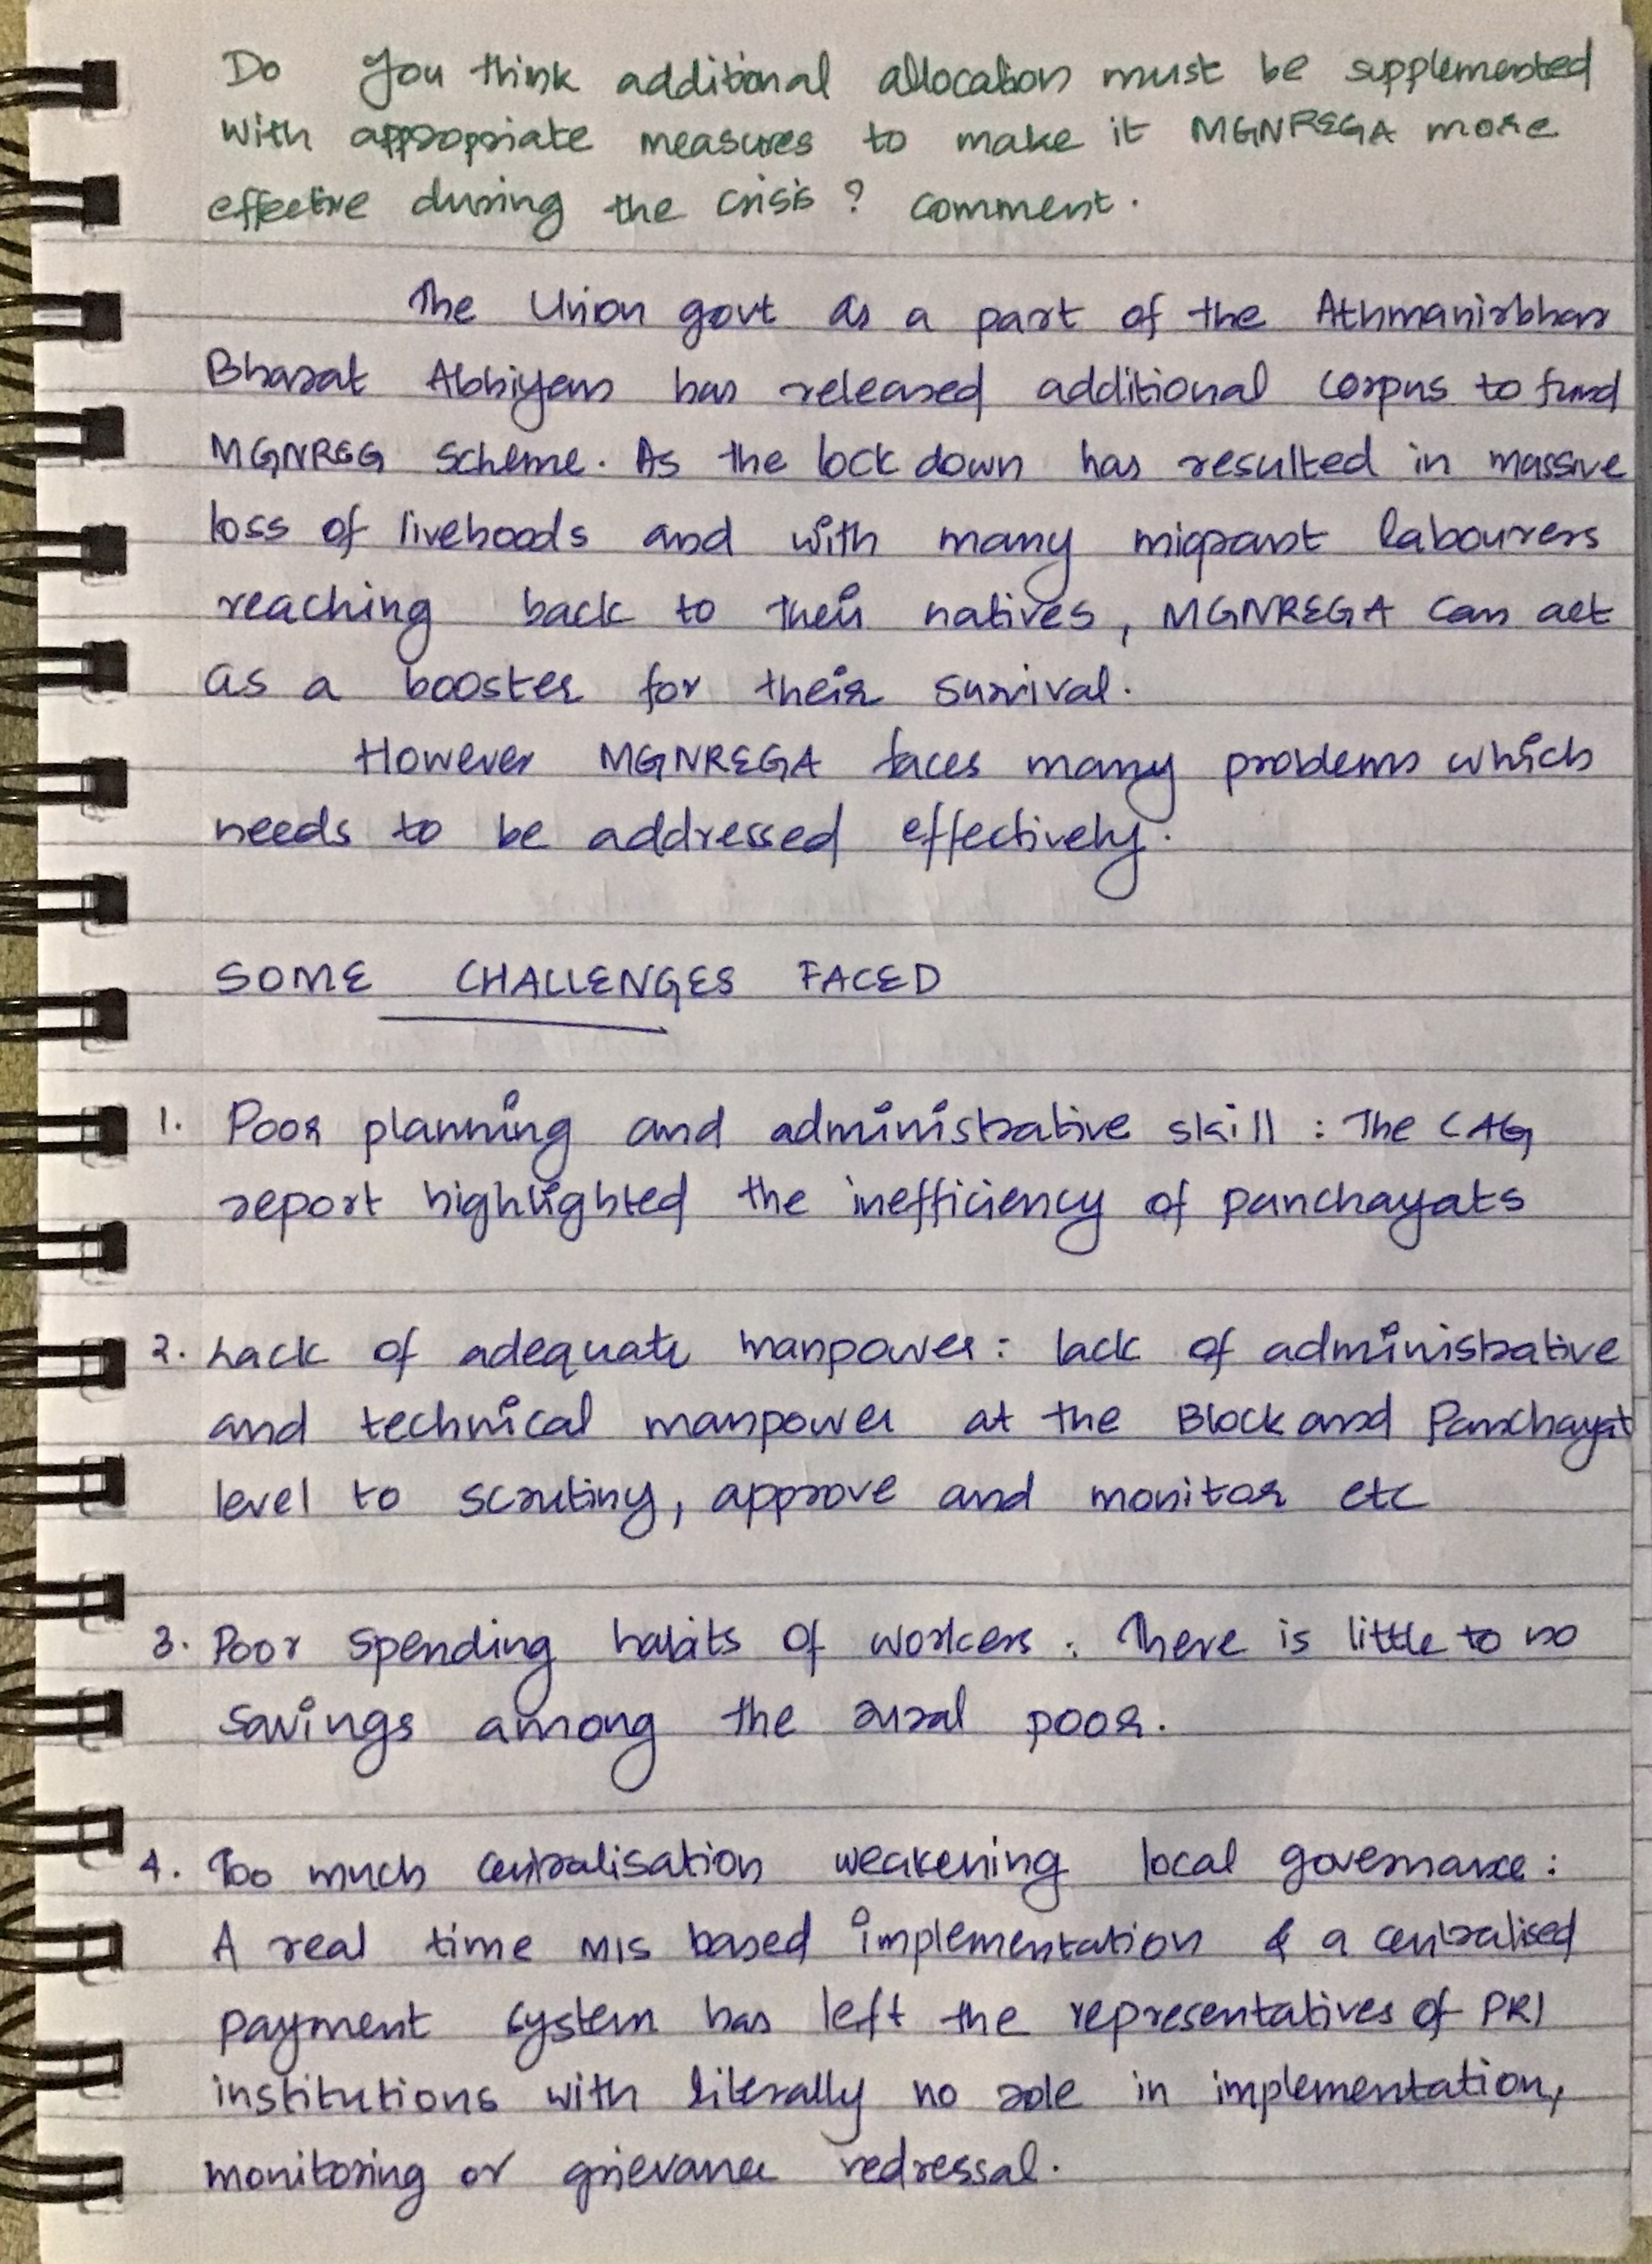 Do you think additional allocation must be supplemented
with appropriate measures to make it MGNREGA more
effective during the crisis? Comment.
The Union govt as a part of the Athmanirbhar
Bharat Abhiyan has released additional corpus to fund
MGNREG Scheme. As the lock down has resulted in massive
loss of livehoods and with many migrant labourers
reaching back to their natives, MGNREGA can act
as a booster for their survival.
However MGNREGA faces many problems which
needs to be addressed effectively.
SOME CHALLENGES FACED
1. Poor planning and administrative skill : The CAG
report highlighted the inefficiency of panchayats
2. Lack of adequate manpower: lack of administrative
and technical manpower at the Block and Panchayat
level to scrutiny, approve and monitor etc
3. Poor spending habits of workers : There is little to no
savings among the rural poor.
4. Too much centralisation weakening local governance:
A real time MIS based implementation & a centralised
payment system has left the representatives of PRI
institutions with literally no role in implementation,
monitoring or grievance redressal.